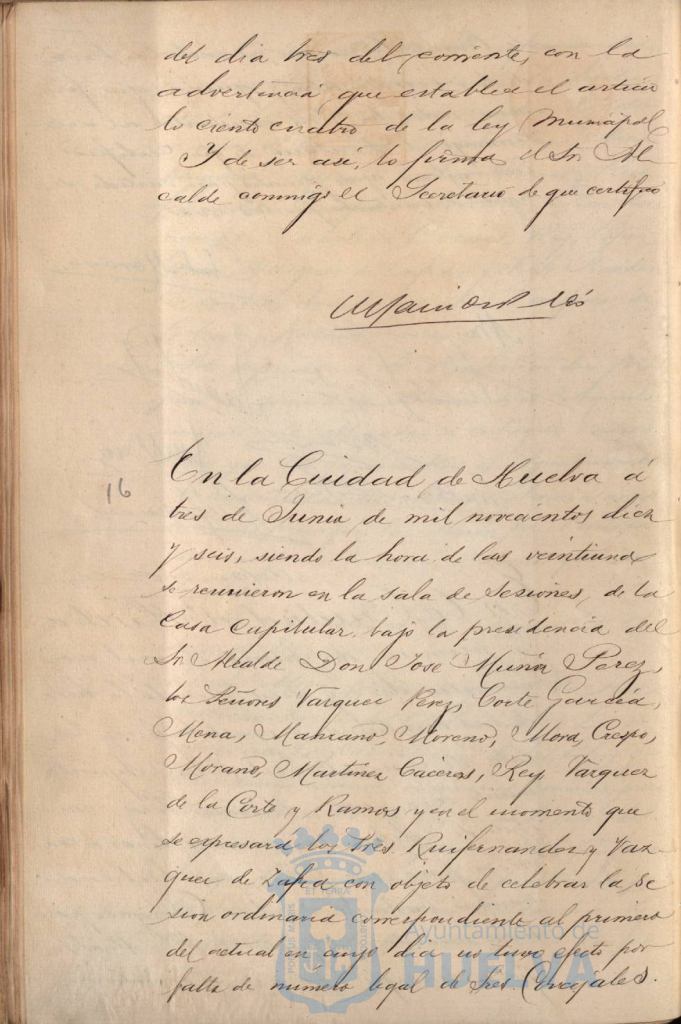 del dia tres del corriente, con la
advertencia que establece el articu
lo ciento cuatro de la ley Municipal
Y de ser asi, lo firma el Sr Al
calde conmigo el Secretario de que certifico
16
En la Ciudad de Huelva á
tres de Junio de mil novecientos diez
y seis, siendo la hora de las veintiuna
se reunieron en la sala de Sesiones, de la
Casa Capitular bajo la presidencia del
Sr Alcalde Don José Muñoz Perez,
los Señores Vazquez Perez, Corte Garcia,
Mena, Manzano, Moreno, Mora, Crespo,
Morano, Martinez Caceres, Rey Vazquez
de la Corte y Ramos y en el momento que
se expresara los Sres Ruifernandez y Vaz-
quez de Zafra con objeto de celebrar la se
sion ordinaria correspondiente al primero
del actual en cuyo dia no tuvo efecto por
falta de numero legal de Sres. Concejales.
Ayuntamiento de
HUELVA